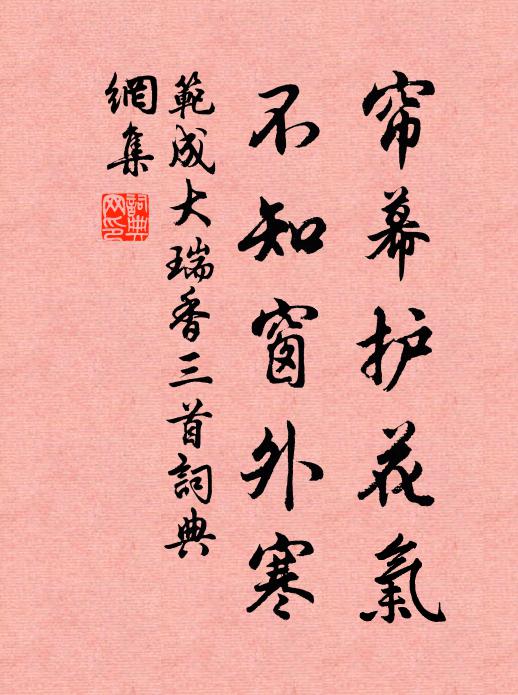 帘幕护花氣
不知窗外寒
範成大瑞香三首詞典
網集
詞典
网印